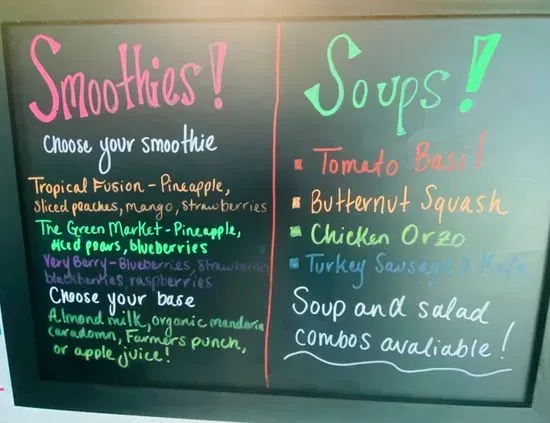 Smoothies!
Choose your smoothie
Tropical Fusion - Pineapple,
sliced peaches, mango, strawberries
The Green Market - Pineapple,
diced pears, blueberries
Very Berry - Blueberries, strawberries
blackberries, raspberries
Choose your base
Almond milk, organic mandarin
caradomn, Farmers punch,
or apple juice!
Soups!
Tomato Basil
Butternut Squash
Chicken Orzo
Turkey Sausage & Kale
Soup and salad
combos avaliable!